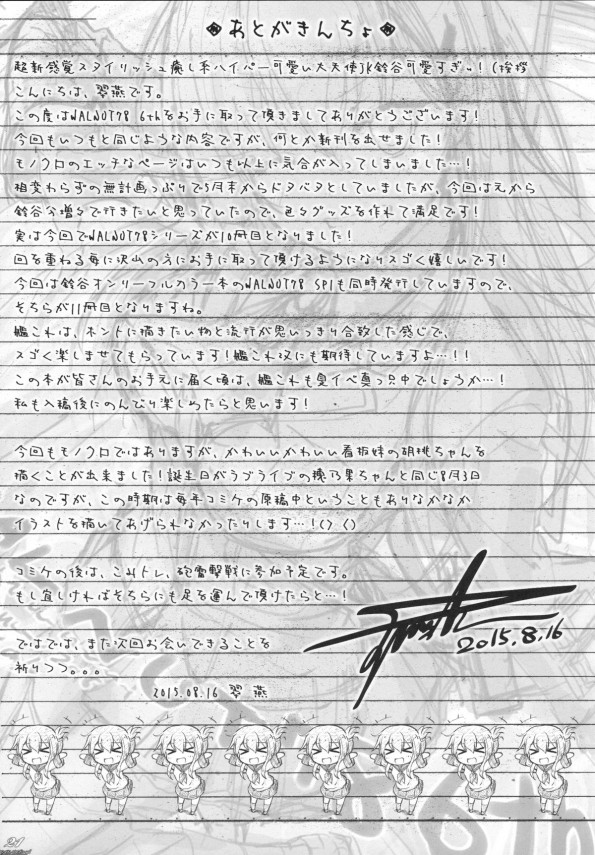 あとがきんちょ
超新感覚スタイリッシュ癒し系ハイパー可愛い大天使JK鈴谷可愛すぎッ!(挨拶
こんにちは、翠燕です。
この度はWALNOT78 6thをお手に取って頂きましてありがとうございます!
今回もいつもと同じような内容ですが、何とか新刊を出せました!
モノクロのエッチなページはいつも以上に気合が入ってしまいました…!
相変わらずの無計画っぷりで5月末からドタバタとしていましたが、今回は元から
鈴谷分増々で行きたいと思っていたので、色々グッズを作れて満足です!
実は今回でWALNOT78シリーズが10冊目となりました!
回を重ねる毎に沢山の方にお手に取って頂けるようになりスゴく嬉しいです!
今回は鈴谷オンリーフルカラー本のWALNOT78 SP1も同時発行していますので、
そちらが11冊目となりますね。
艦これは、ホントに描きたい物と流行が思いっきり合致した感じで、
スゴく楽しませてもらっています!艦これ改にも期待していますよ…!!
この本が皆さんのお手元に届く頃は、艦これも夏イベ真っ只中でしょうか…!
私も入稿後にのんびり楽しめたらと思います!
今回もモノクロではありますが、かわいいかわいい看板妹の胡桃ちゃんを
描くことが出来ました!誕生日がラブライブの穂乃果ちゃんと同じ8月3日
なのですが、この時期は毎年コミケの原稿中ということもありなかなか
イラストを描いてあげられなかったりします…!() ()
コミケの後は、こみトレ、砲雷撃戦に参加予定です。
もし宜しければそちらにも足を運んで頂けたらと…!
2015.8.16
ではでは、また次回お会いできることを
祈りつつ。。。
2015.08.16 翠燕
21